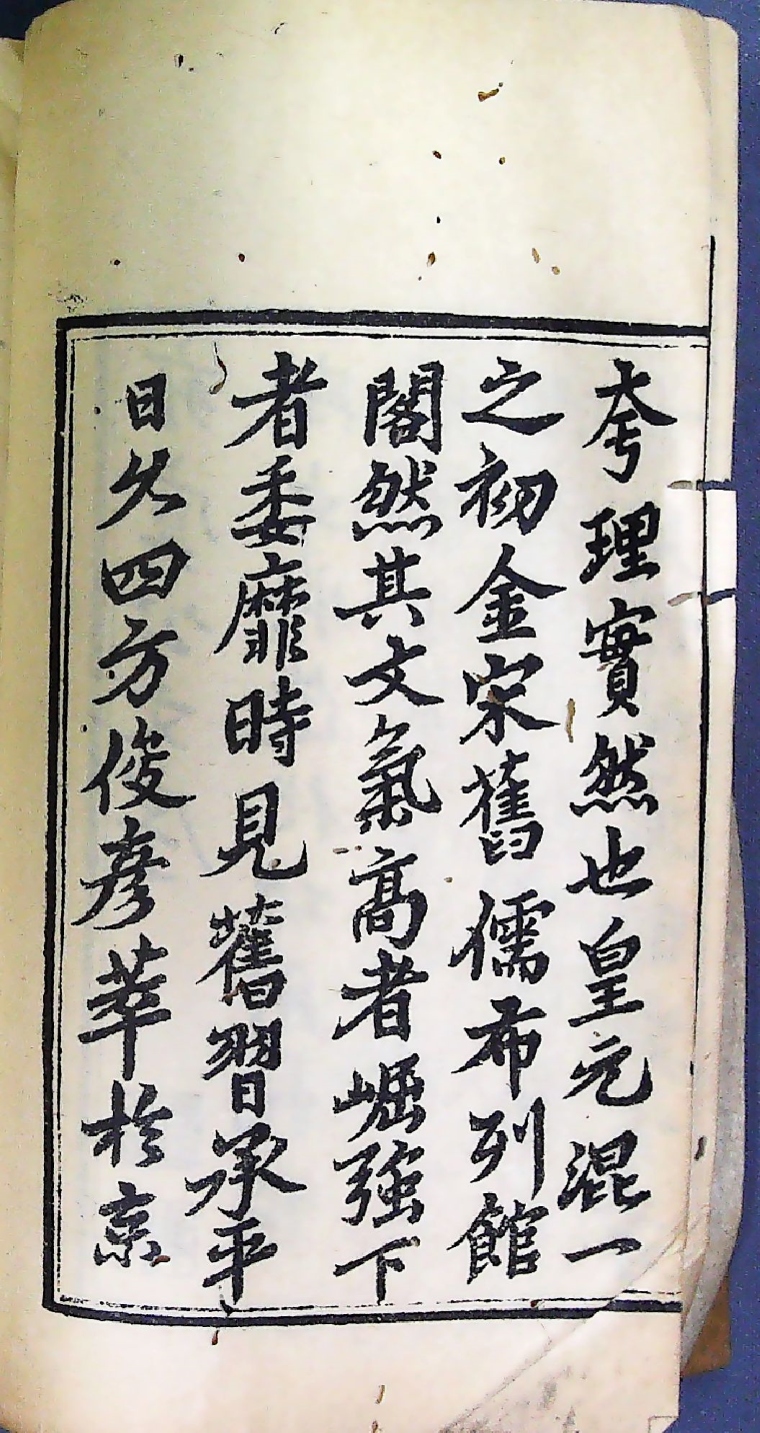 夸理實然也皇元混一
之初金宋舊儒布列館
閣然其文氣高者崛強下
者委靡時見舊習承平
日久四方俊彦萃於京